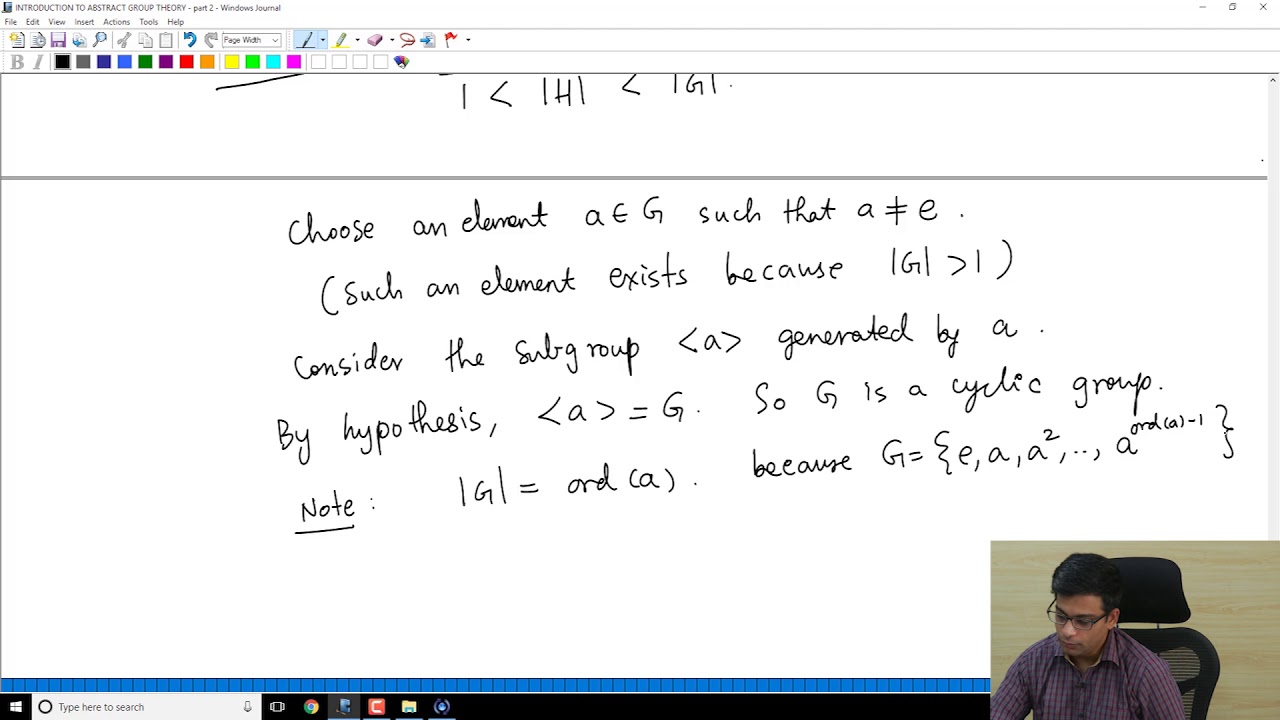 INTRODUCTION TO ABSTRACT GROUP THEORY - part 2 - Windows Journal
File Edit View Insert Actions Tools Help
Page Width
B I
1 < |H| < |G|.
Choose an element a ∈ G such that a ≠ e.
(Such an element exists because |G| > 1)
Consider the subgroup <a> generated by a.
By hypothesis, <a> = G. So G is a cyclic group.
Note: |G| = ord(a). because G = {e, a, a², .., a^{ord(a)-1}}
Type here to search